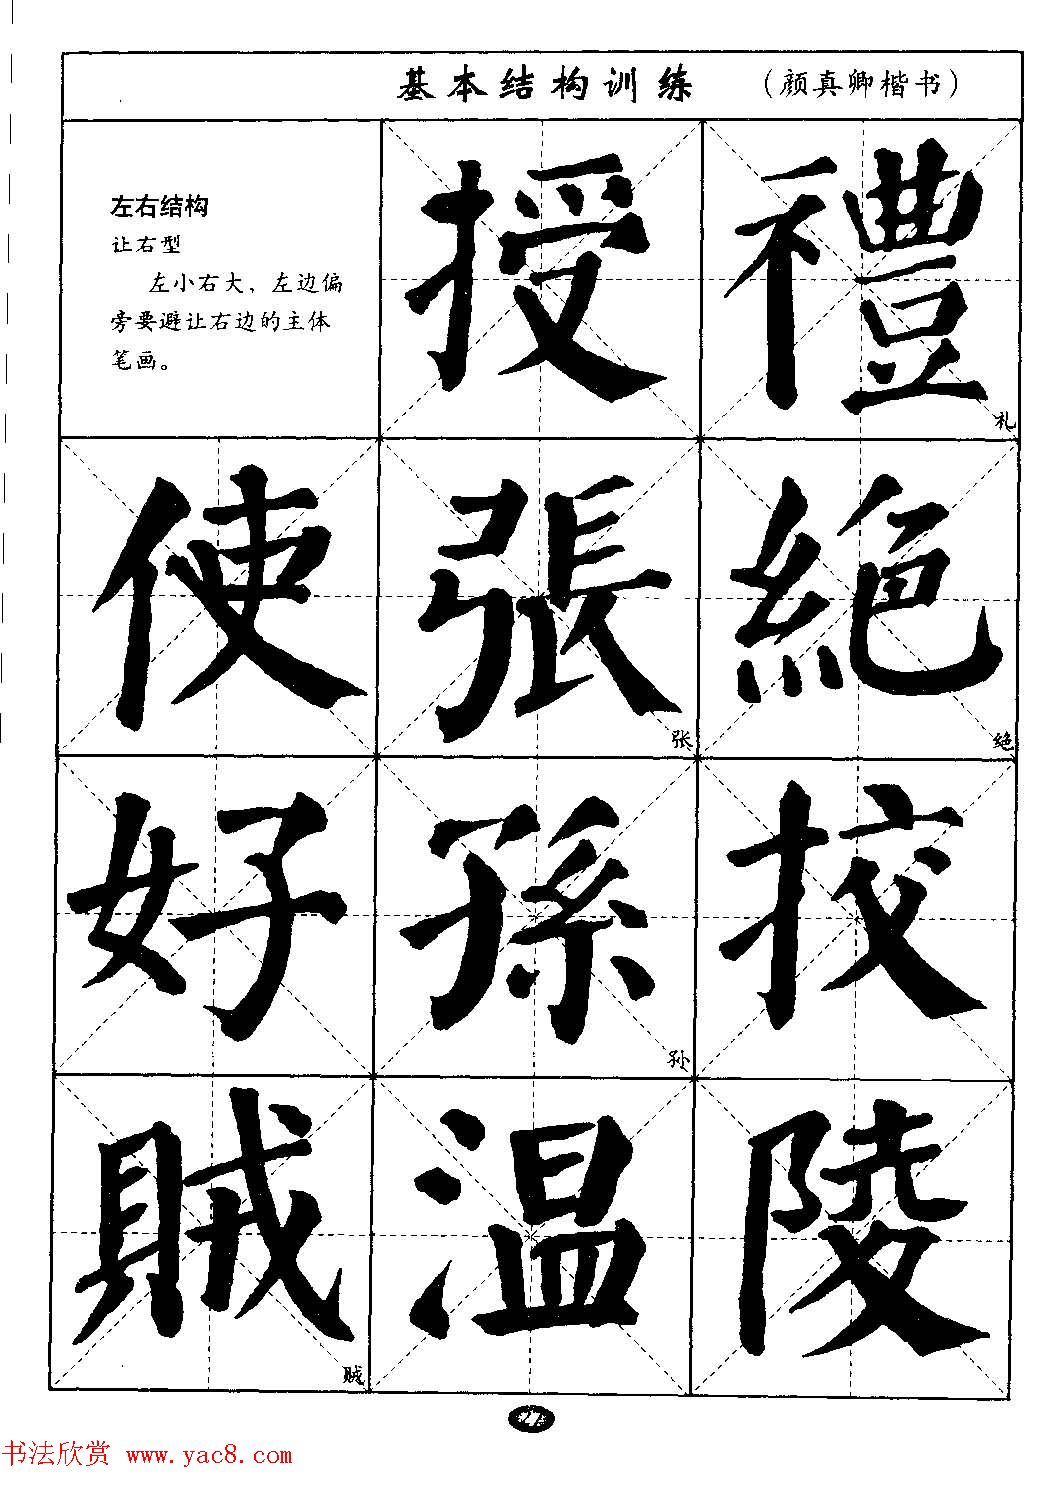 基本结构训练 （颜真卿楷书）
左右结构
让右型
左小右大，左边偏
旁要避让右边的主体
笔画。
授 禮 礼
使 張 张 絕 绝
好 孫 孙 挍
賊 贼 温 陵
27
书法欣赏 www.yac8.com